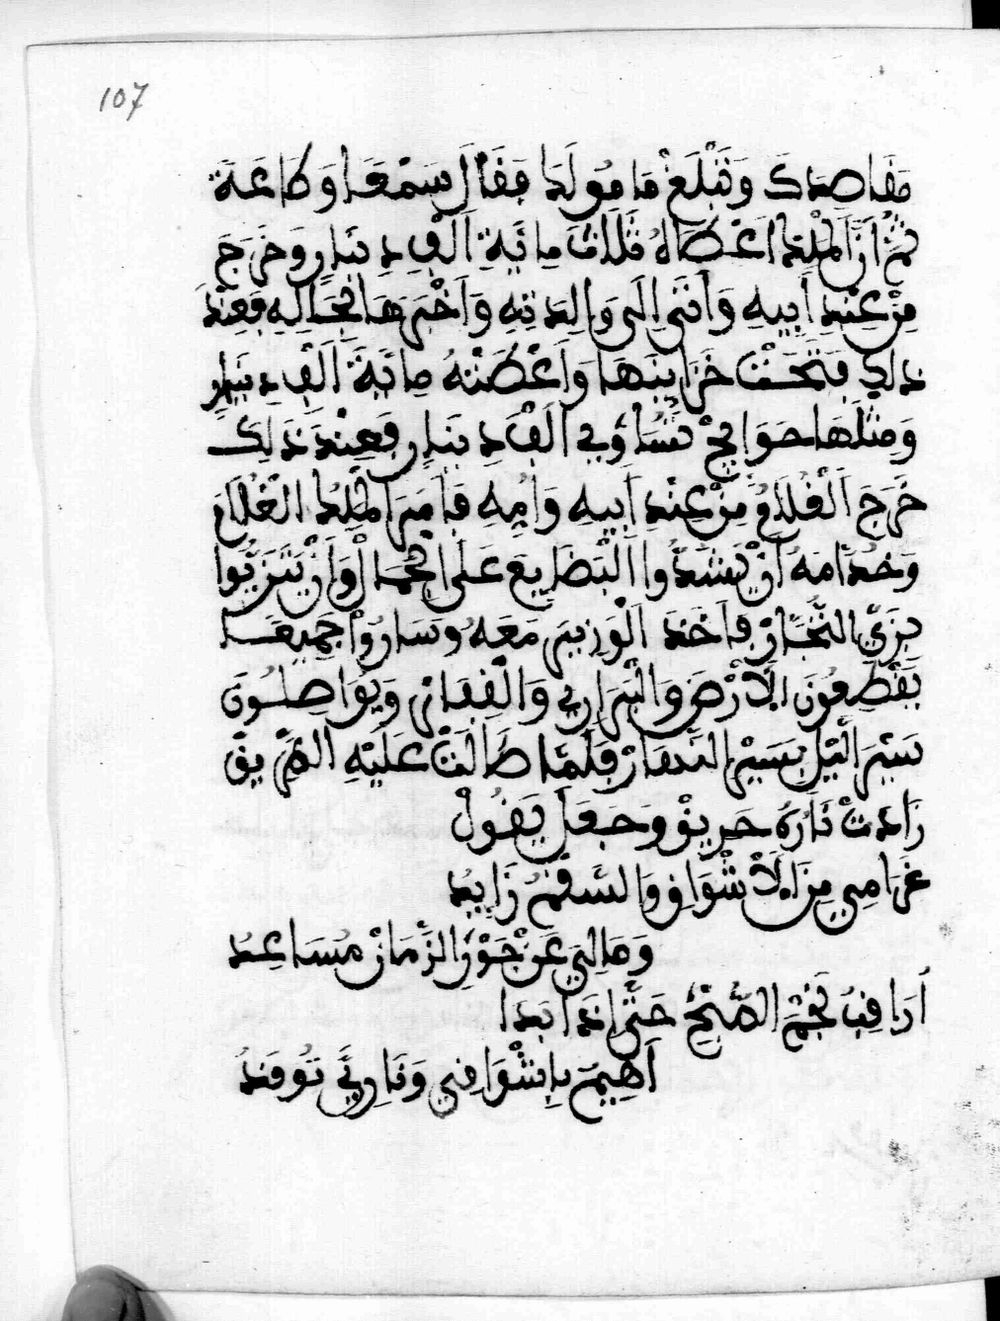 107
مَقَاصِدَكَ وَتَبْلَغْ مَا مُولَدَا فَقَالَ سَمْعَا وَطَاعَة
ثُمَّ أنَّ الْمَلِكَ اعْطَاهُ ثَلَاثَ مِائَيةِ الْفِ دِينَارٍ وَخَرَجَ
مِنْ عِنْدِ أبِيهِ وَأتَى الَى وَالِدَتِهِ وَأخْبَرَهَا بِحَالِهِ فَعِنْدَ
ذَلِكَ فَتَحَتْ خَزَايِنَهَا وَاعْطَتْهُ مِائَيةَ الْفِ دِينَارٍ
وَمِثْلَهَا حَوَايِجْ تْسَاوِي الْفْ دِينَارٍ فَعِنْدَ ذَلِكَ
خَرَجَ الْغُلَامُ مِنْ عِنْدِ أبِيهِ وَأمِّهِ فَأمَرَ الْمَلِكُ الْغُلَامْ
وَخُدَّامَهُ أنْ يَشَدُّوا الْبَضَايِعَ عَلَى الْجِمَالْ وَأنْ يَتَزَيُّوا
بِزَيِّ التُّجَّارْ فَأخَذَ الْوَزِيرَ مَعَهُ وَسَارُوا جَمِيعَا
يَقْطَعُونَ الْأرْضَ وَالْبَرَارِي وَالْقِفَارِ وَيُوَاصِلُونَ
سَيْرَ الَّيْلِ بِسَيْرِ النَّهَارْ فَلَمَّا طَالَتْ عَلَيْهِ الطَّرِيقْ
زَادَتْ نَارُهُ حَرِيقْ وَجَعَلَ يَقُولْ
غَرَامِي مِنَ الْأشْوَاقِ وَالسَّقْمُ زَايِدُ
وَمَا لِي عَنْ جَوْرِ الزَّمَانْ مُسَاعِدُ
أرَاقِبُ نَجْمَ الصُّبْحْ حَتَّى إذَا بَدَا
أهِيمُ بِإشْوَاقِي وَنَارِيَّ تُوقَدُ